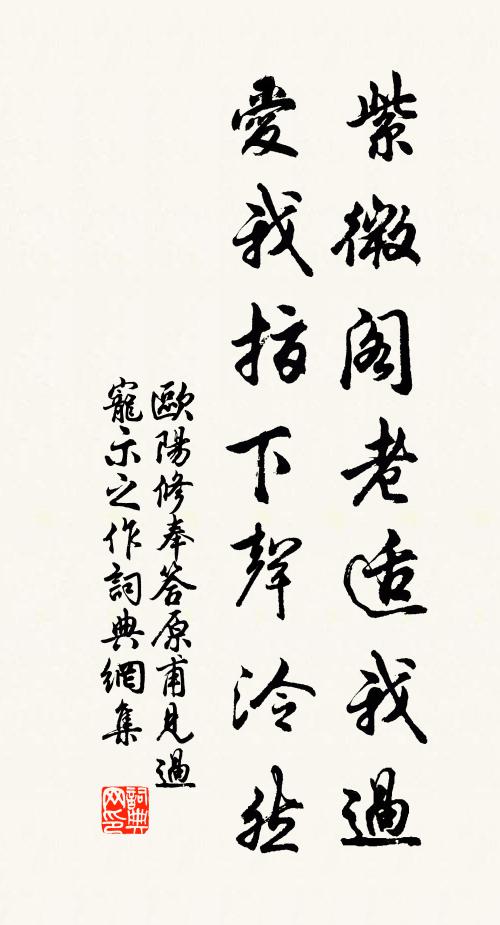 紫微阁老适我過
愛我指下聲泠然
歐陽修奉答原甫見過
寵示之作詞典網集
詞典網印